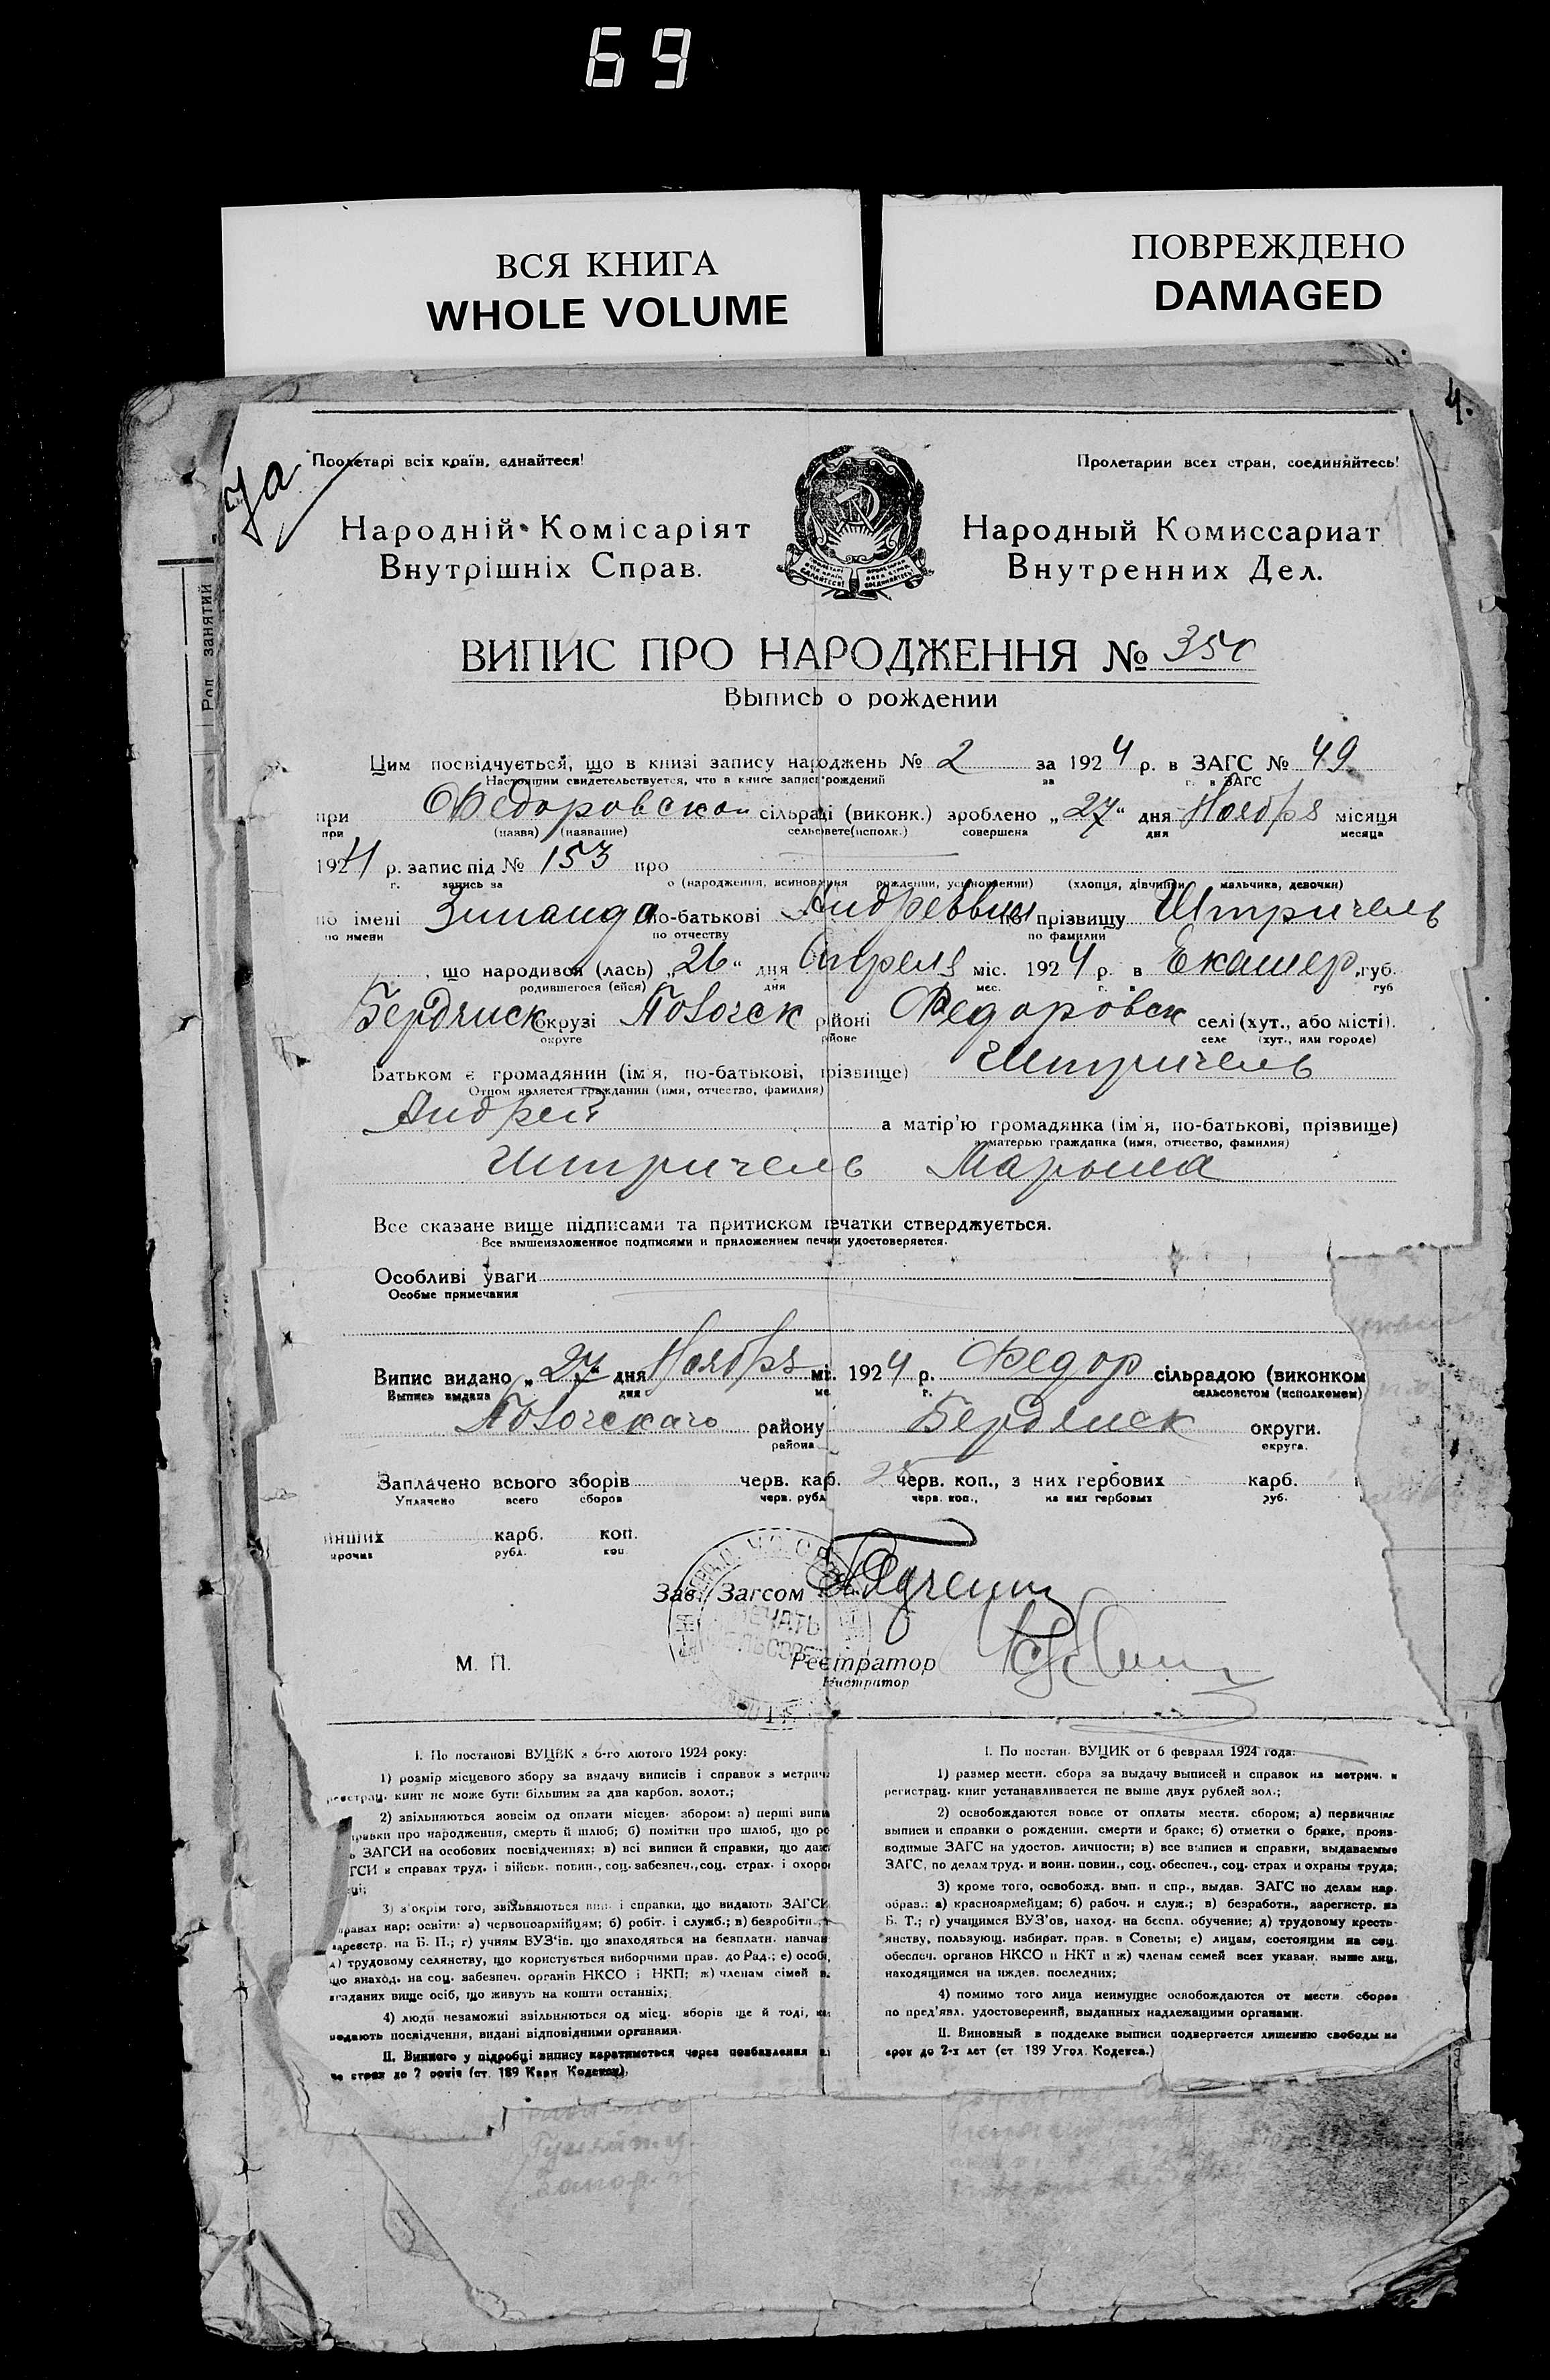 69
ВСЯ КНИГА
WHOLE VOLUME
ПОВРЕЖДЕНО
DAMAGED
4.
Пролетарі всіх країн, єднайтеся!
Пролетарии всех стран, соединяйтесь!
Народній Комісаріят
Внутрішніх Справ.
Народный Комиссариат
Внутренних Дел.
Род занятий
ВИПИС ПРО НАРОДЖЕННЯ №
Выпись о рождении
Цим посвідчується, що в книзі запису народжень № 2 за 1924 р. в ЗАГС № 49
Настоящим свидетельствуется, что в книге записи рождений за г. в ЗАГС
при Федоровской сільраді (виконк.) зроблено „27“ дня Ноября місяця
при (назва) (название) сельсовете(исполк.) совершена дня месяца
1924 р. запис під № 153 про
г. запись за о (народження, всиновлення рождении, усыновлении) (хлопця, дівчинки мальчика, девочки)
по імені Зинаида по-батькові Андреевны по прізвищу Штричель
по имени по отчеству по фамилии
, що народився (лась) „26“ дня Апреля міс. 1924 р. в Екатер. губ.
родившегося (ейся) дня мес. г. в губ
Бердянск окрузі районі Федоровск селі (хут., або місті).
округе районе селе (хут., или городе)
Батьком є громадянин (ім'я, по-батькові, прізвище) Штричель
Отцом является гражданин (имя, отчество, фамилия)
Андрей а матір'ю громадянка (ім'я, по-батькові, прізвище)
а матерью гражданка (имя, отчество, фамилия)
Штричель
Все сказане вище підписами та притиском печатки стверджується.
Все вышеизложенное подписями и приложением печати удостоверяется.
Особливі уваги
Особые примечания
Випис видано „27“ дня Ноября мі. 1924 р. Федор сільрадою (виконком
Выпись выдана дня ме. г. сельсоветом (исполкомом)
району Бердянск округи.
района округа.
Заплачено всього зборів черв. карб. 25 черв. коп., з них гербових карб.
Уплачено всего сборов черв. рубл черв. коп., из них гербовых руб.
инших карб. коп.
прочих рубл. коп
Зав. Загсом
ПЕЧАТЬ
М. П.
Реєстратор
Регистратор
I. По постанові ВУЦВК з 6-го лютого 1924 року:
1) розмір місцевого збору за видачу виписів і справок з метрич.
реєстрац. книг не може бути більшим за два карбов. золот.;
2) звільняються зовсім од оплати місцев. збором: а) перші випи
справки про народження, смерть й шлюб; б) помітки про шлюб, що ро
ь ЗАГСИ на особових посвідченнях; в) всі виписи й справки, що дают
ГСИ в справах труд. і військ. повин., соц. забезпеч., соц. страх. і охоро
ці;
3) з'окрім того, звільняються вип. і справки, що видають ЗАГСИ
справах нар; освіти: а) червоноармійцям; б) робіт. і служб.; в) безробітн.,
зареєстр. на Б. П.; г) учням ВУЗ'ів. що знаходяться на безплатн. навчан
д) трудовому селянству, що користується виборчими прав. до Рад.; е) особ,
що знаход. на соц. забезпеч. органів НКСО і НКП; ж) членам сімей в.
згаданих вище осіб, що живуть на кошти останніх;
4) люди незаможні звільняються од місц. зборів ще й тоді, ко
подають посвідчення, видані відповідними органами.
II. Винного у підробці випису каратиметься через позбавлення в
на строк до 2 років (ст. 189 Карн Кодексу).
I. По постан. ВУЦИК от 6 февраля 1924 года:
1) размер местн. сбора за выдачу выписей и справок из метрич. и
регистрац. книг устанавливается не выше двух рублей зол.;
2) освобождаются вовсе от оплаты местн. сбором; а) первичные
выписи и справки о рождении. смерти и браке; б) отметки о браке, произ-
водимые ЗАГС на удостов. личности; в) все выписи и справки, выдаваемые
ЗАГС, по делам труд. и воин. повин., соц. обеспеч., соц. страх и охраны труда;
3) кроме того, освобожд. вып. и спр., выдав. ЗАГС по делам нар.
образ.: а) красноармейцам; б) рабоч. и служ.; в) безработн., зарегистр. на
Б. Т.; г) учащимся ВУЗ'ов, наход. на беспл. обучение; д) трудовому кресть-
янству, пользующ. избират. прав. в Советы; е) лицам, состоящим на соц.
обеспеч. органов НКСО и НКТ и ж) членам семей всех указан. выше лиц,
находящимся на иждев. последних;
4) помимо того лица неимущие освобождаются от мести. сборов
по пред'явл. удостоверений, выданных надлежащими органами.
II. Виновный в подделке выписи подвергается лишению свободы на
срок до 2-х лет (ст 189 Угол. Кодекса.)